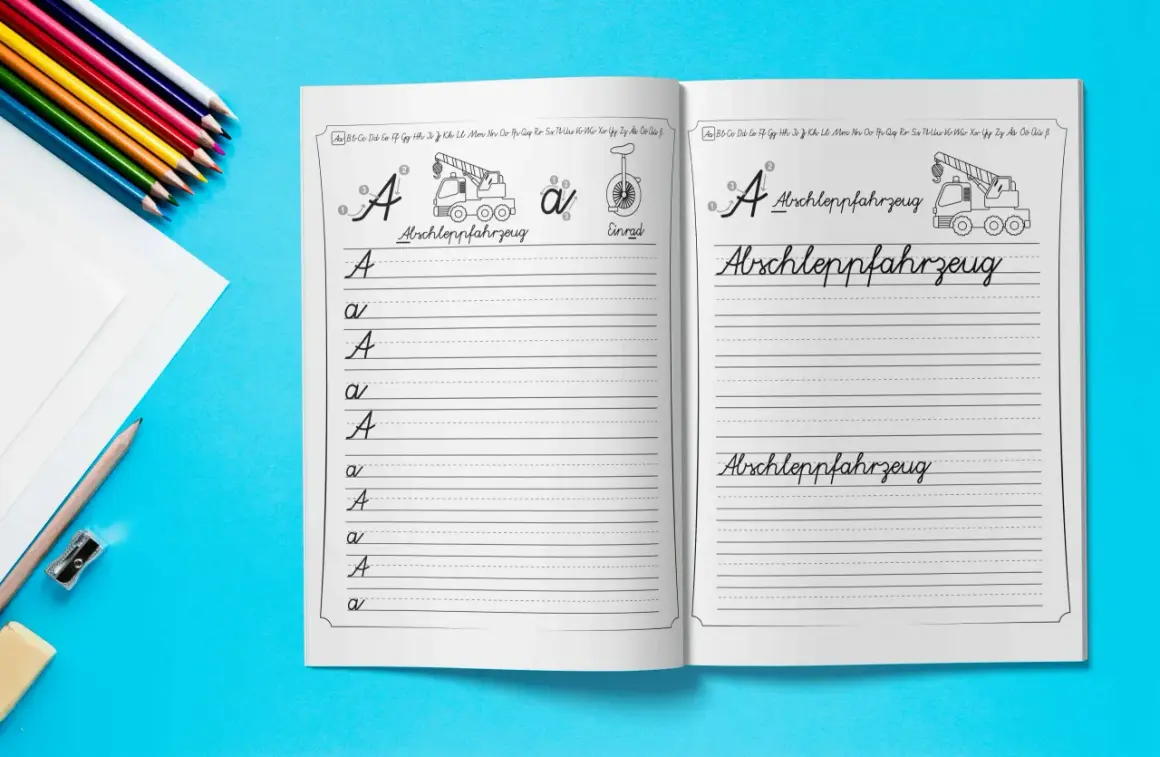 Aa Bb Cc Dd Ee Ff Gg Hh Ii Jj Kk Ll Mm Nn Oo Pp Qq Rr Ss Tt Uu Vv Ww Xx Yy Zz Ää Öö Üü ß
1 3 2 A a 1 2 3
Abschleppfahrzeug Einrad
A
a
A
a
A
a
A
a
A
a
Aa Bb Cc Dd Ee Ff Gg Hh Ii Jj Kk Ll Mm Nn Oo Pp Qq Rr Ss Tt Uu Vv Ww Xx Yy Zz Ää Öö Üü ß
1 3 2 A Abschleppfahrzeug
Abschleppfahrzeug
Abschleppfahrzeug